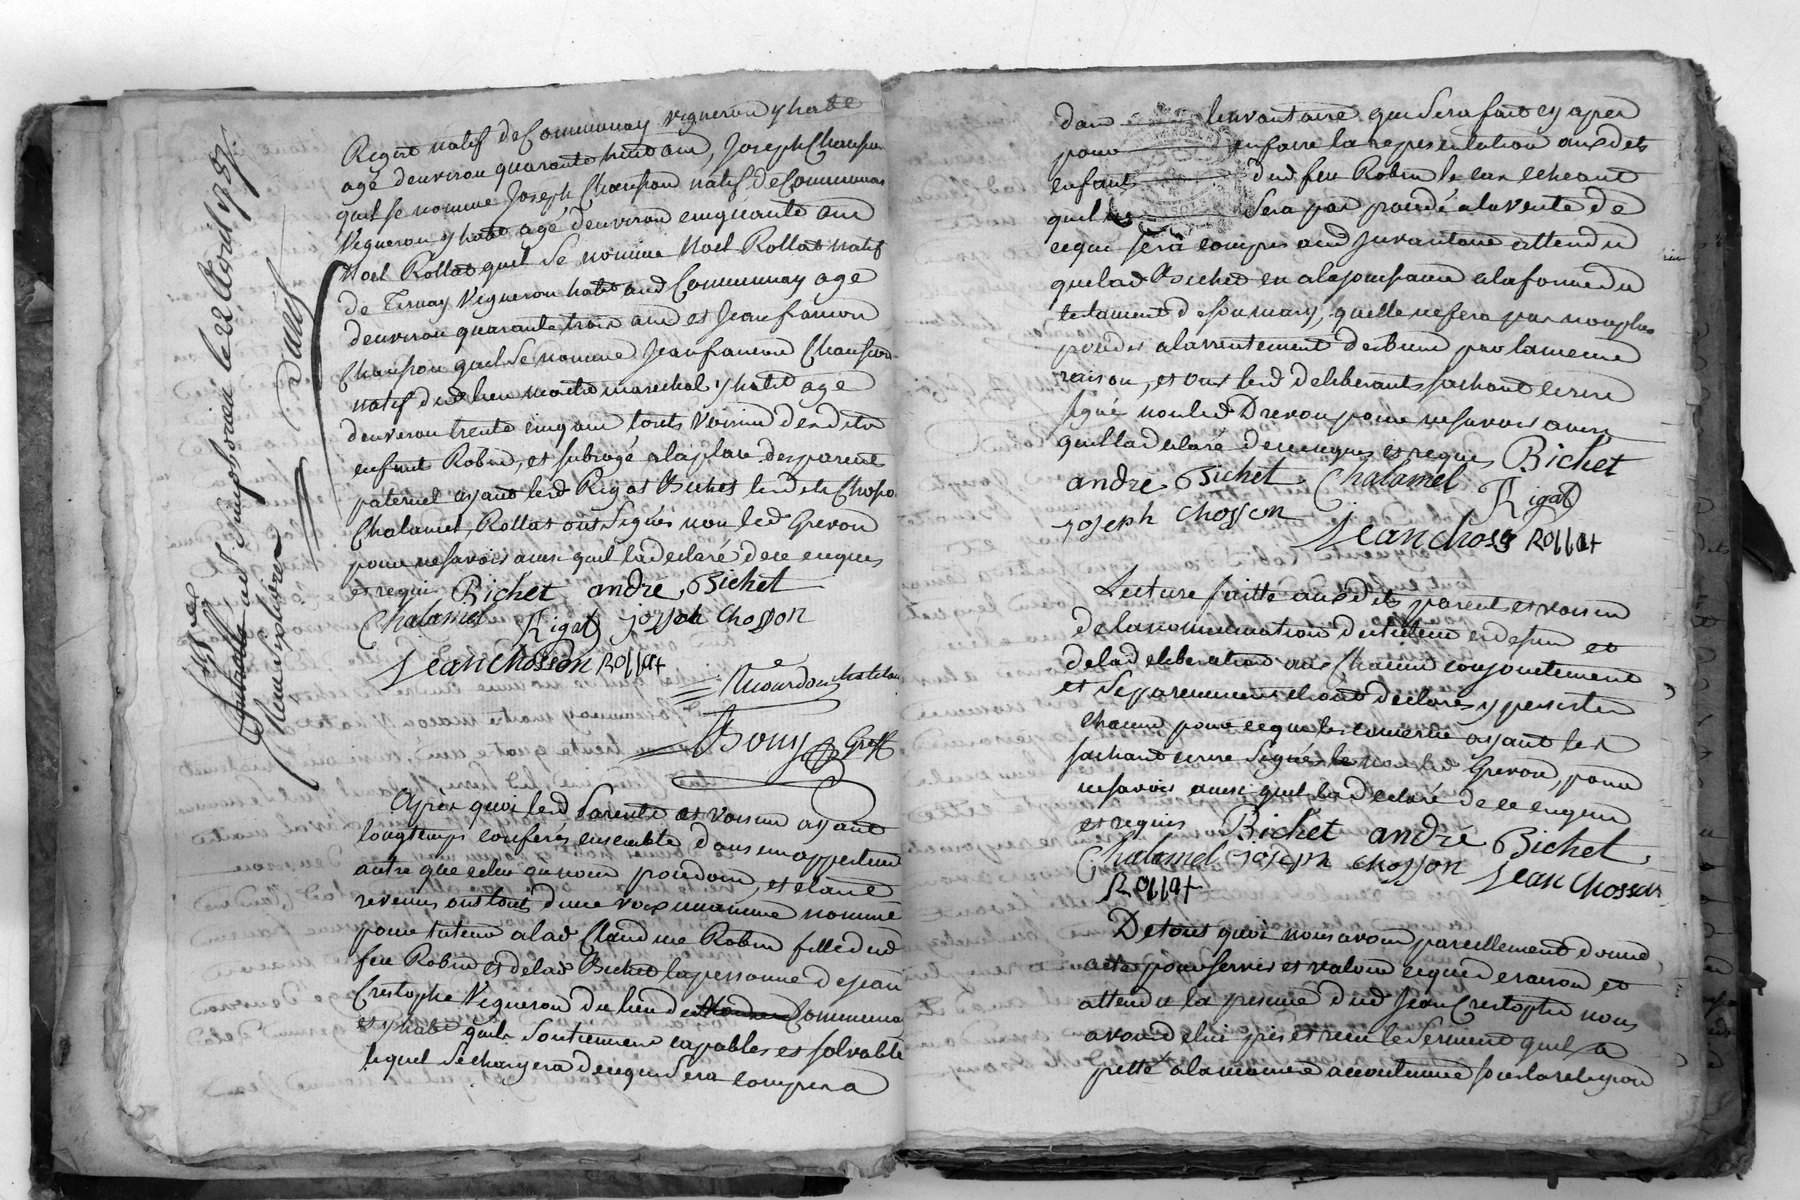 Rigot natif de Communay vigneron y habt
agé denviron quarante huit ans, Joseph Chausson
quil se nomme Joseph Chausson natif de Communay
Vigneron y habt agé denviron cinquante ans
Noel Rollat quil se nomme Noel Rollat natif
de Ternay Vigneron habt aud Communay age
denviron quarante trois ans et Jean francois
Chausson quil se nomme Jean francois Chausson
natif dud lieu maitre marechal y habt agé
denviron trente cinq ans touts voisins desdits
enfants Robin, et subrogé a la place des parents
paternel ayant lesd Rigot Bichet lesdits Chosson
Chalamel, Rollat ont signés non led Grevon
pour ne savoir ainsi quil la declaré de ce enquis
et requis Bichet andré Bichet
Chalamel Rigat joseph chosson
Jean Chosson Rollat
Bouy Greff
le 22 Avril 1787
Dauel
Apres quoi lesd Parents et voisins ayant
longtemps conferés ensemble dans un appartement
autre que celui ou nous procedons, et etant
revenus ont touts d'une voix unanime nommé
pour tuteur a lad Claudine Robin fille dud
feu Robin et de lad Bichet la personne de Jean
Crestophe Vigneron du lieu de Communay
et y habt quils soutiennent capables et solvable
lequel se chargera de ce qui sera compris a
dans linvantaire qui sera fait cy apres
pour en faire la representation auxdits
enfants dud feu Robin le cas echeant
quil ne sera pas procedé a la vente de
ce qui sera compris aud Invantaire attendu
que lad Bichet en a la jouissance a la forme du
testament de son mary, quelle ne sera pas non plus
procedés a larrentement des Biens par la meme
raison, et ont lesd deliberants sachant ecrire
signé non led Drevon pour ne savoir ainsi
quil la declaré de ce enquis et requis Bichet
andré Bichet Chalamel Rigat
joseph chosson Jean Choss Rollat
Lecture faitte auxdits parents et voisins
de la nomination de tuteur cy dessus et
de la deliberation aux chacun conjointement
et separement ils ont declarés y persister
chacun pour ce qui les concerne ayant les
sachant ecrire signés non led Grevon, pour
ne savoir ainsi quil la declaré de ce enquis
et requis Bichet andré Bichet
Chalamel joseph chosson Jean Chosson
Rollat
De tout quoi nous avons pareillement donné
acte pour servir et valoir ce que de raison et
attendu la presence dud Jean Crestophe nous
avons de lui pris et recu le serment quil a
petté a la maniere accoutumée sous la religion